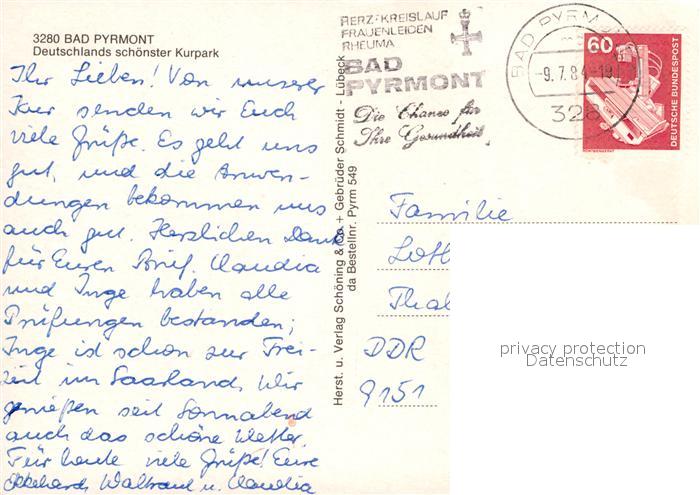 3280 BAD PYRMONT
Deutschlands schönster Kurpark
Ihr Lieben! Von unserer
Kur senden wir Euch
viele Grüße. Es geht uns
gut, und die Anwen-
dungen bekommen uns
auch gut. Herzlichen Dank
für Euren Brief. Claudia
und Inge haben alle
Prüfungen bestanden;
Inge ist schon zur Frei-
zeit im Saarland. Wir
genießen seit Sonnabend
auch das schöne Wetter.
Für heute viele Grüße! Eure
Ekkehard, Waltraut u. Claudia
Herst. u. Verlag Schöning & Co. + Gebrüder Schmidt - Lübeck
da Bestellnr. Pyrm 549
HERZ-KREISLAUF
FRAUENLEIDEN
RHEUMA
BAD
PYRMONT
Die Chance für
Ihre Gesundheit
BAD PYRMONT
-9.7.84-19
328
60
DEUTSCHE BUNDESPOST
Familie
Loth
Thal
DDR
9151
privacy protection
Datenschutz